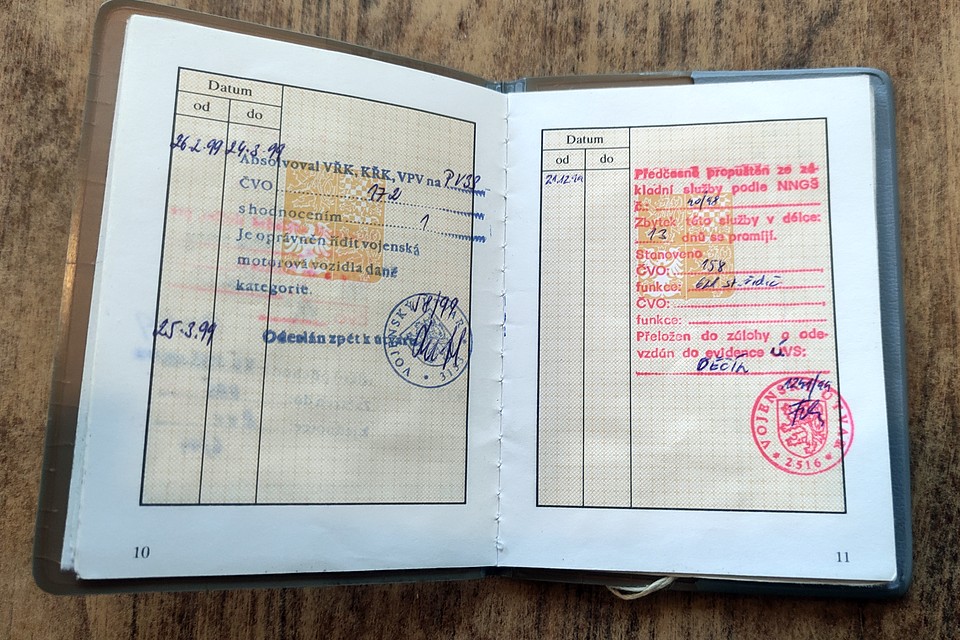 Datum
od do
26.2.99 24.3.99
Absolvoval VŘK, KŘK, VPV na PV3S
ČVO 172
s hodnocením 1
Je oprávněn řídit vojenská
motorová vozidla dané
kategorie.
25.3.99 Odeslán zpět k útvaru
VOJENSKÝ
10
Datum
od do
21.12.99
Předčasně propuštěn ze zá-
kladní služby podle NNGŠ
č.:
Zbytek této služby v délce:
13 dnů se promíjí.
Stanoveno
ČVO: 158
funkce: st. řidič
ČVO:
funkce:
Přeložen do zálohy a ode-
vzdán do evidence ÚVS:
DĚČÍN
VOJENSKÝ ÚTVAR
* 2516 *
11